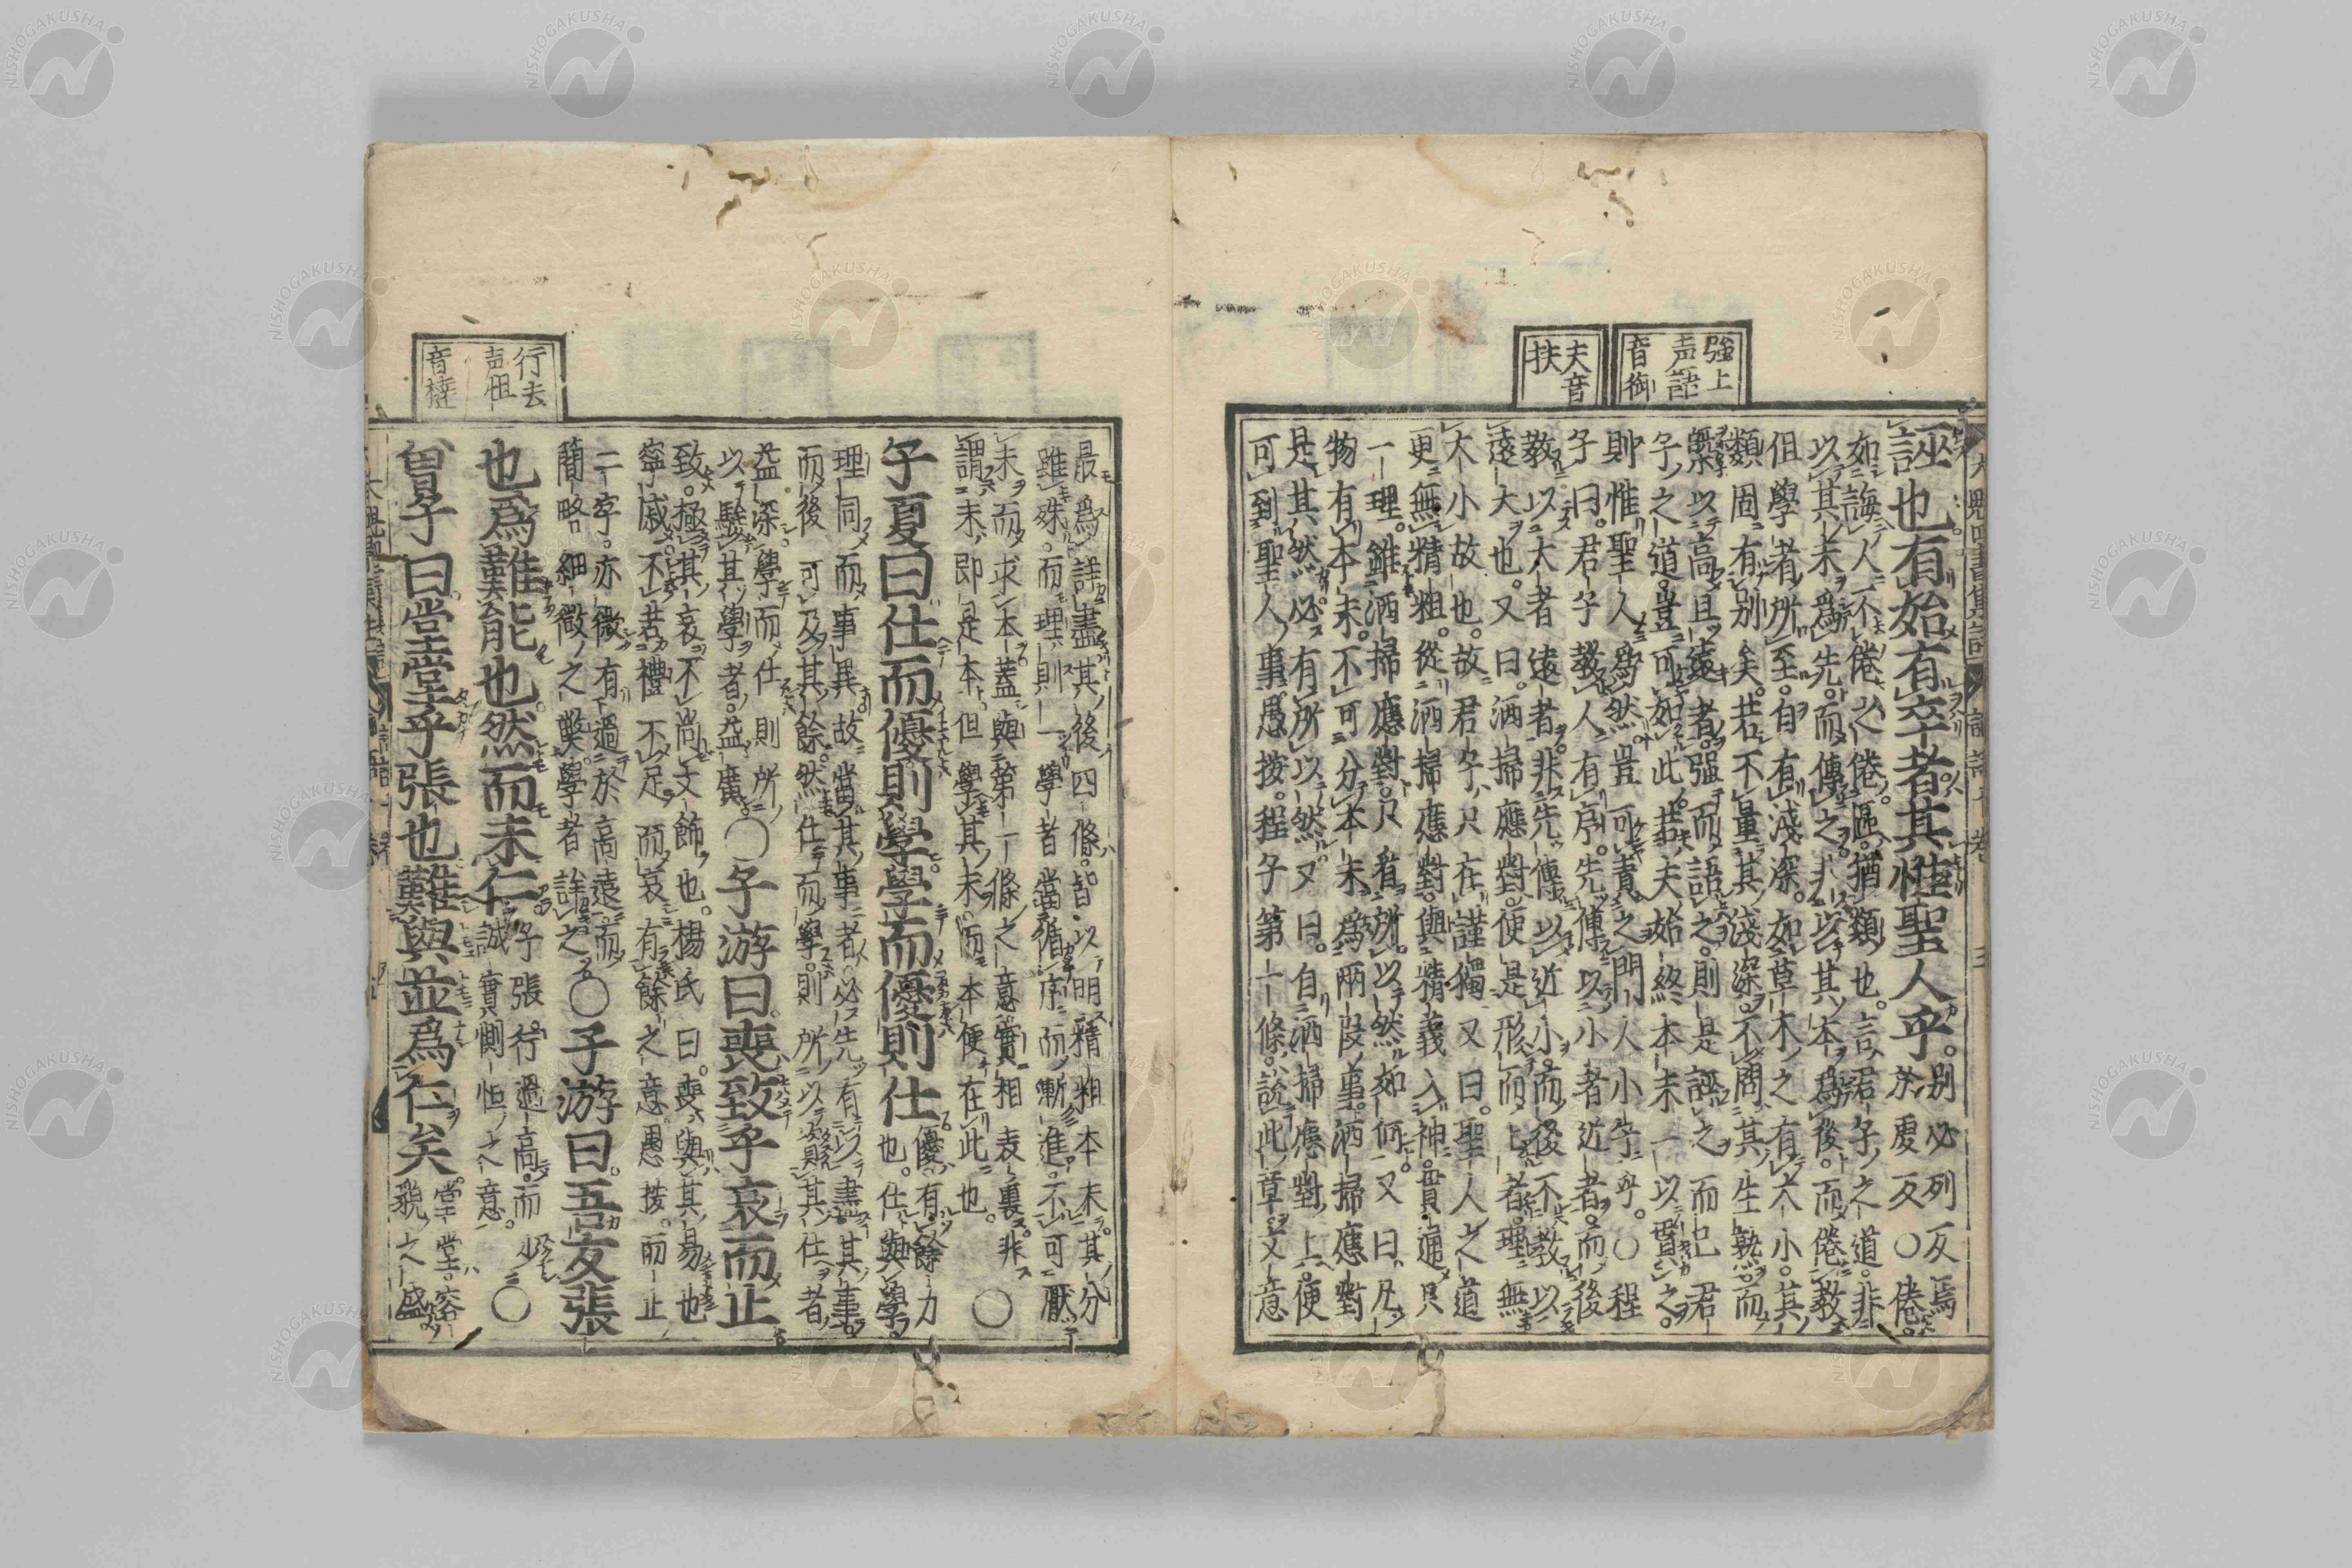 強上
声語
音御
夫音
扶
誣也有始有卒者其惟聖人乎別必列反焉
於虔反○倦
如誨人不倦之倦區猶類也言君子之道非
以其末爲先而傳之非以其本爲後而倦教
但學者所至自有淺深如草木之有大小其
類固有別矣若不量其淺深不問其生熟而
槩以高且遠者强而語之則是誣之而已君
子之道豈可如此若夫始終本末一以貫之
則惟聖人爲然豈可責之門人小子乎○程
子曰君子教人有序先傳以小者近者而後
教以大者遠者非先傳以近小而後不教以
遠大也又曰洒掃應對便是形而上者理無
大小故也故君子只在謹獨又曰聖人之道
更無精粗從洒掃應對與精義入神貫通只
一理雖洒掃應對只看所以然如何又曰凡
物有本末不可分本末爲兩段事洒掃應對
是其然必有所以然又曰自洒掃應對上便
可到聖人事愚按程子第一條說此章文意
行去
声怛
音撻
最爲詳盡其後四條皆以明精粗本末其分
雖殊而理則一學者當循序而漸進不可厭
末而求本蓋與第一條之意實相表裏非
謂末即是本但學其末而本便在此也○
子夏曰仕而優則學學而優則仕優有餘力
也仕與學
理同而事異故當其事者必先有以盡其事
而後可及其餘然仕而學則所以資其仕者
益深學而仕則所
以驗其學者益廣○子游曰喪致乎哀而止
致極其哀不尚文飾也楊氏曰喪與其易也
寧戚不若禮不足而哀有餘之意愚按而止
二字亦微有過於高遠而
簡略細微之弊學者詳之○子游曰吾友張
也爲難能也然而未仁子張行過高而少
誠實惻怛之意○
曾子曰堂堂乎張也難與並爲仁矣堂堂容
貌之盛
NISHOGAKUSHA